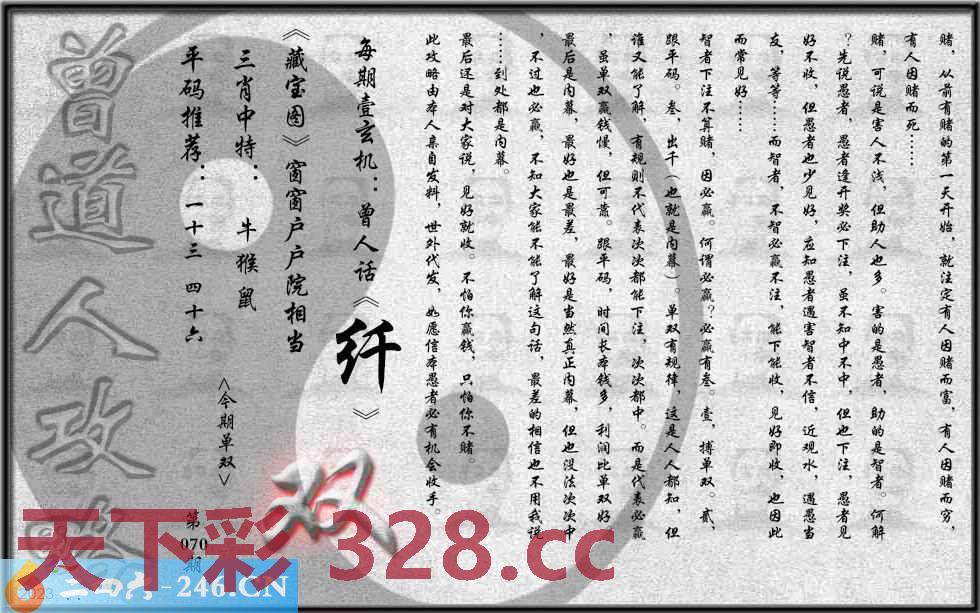 赌，从前有赌的第一天开始，就注定有人因赌而富，有人因赌而穷，
有人因赌而死……
赌，可说是害人不浅，但助人也多。害的是愚者，助的是智者。何解
？先说愚者，愚者逢开奖必下注，虽不知中不中，但也下注，愚者见
好不收，但愚者也少见好，应知愚者遇害智者不信，近观水，遇愚当
友，等等……而智者，不智必赢不注，能下能收，见好即收，也因此
而常见好……
智者下注不算赌，因必赢。何谓必赢？必赢有叁。壹，搏单双。贰，
跟平码。叁，出千（也就是内幕）。单双有规律，这是人人都知，但
谁又能了解，有规则不代表次次都能下注，次次都中。而是代表必赢
，虽单双赢钱慢，但可靠。跟平码，时间长本钱多，利润比单双好。
最后是内幕，最好也是最差，最好是当然真正内幕，但也没法次次中
，不过也必赢，不知大家能不能了解这句话，最差的相信也不用我说
……到处都是内幕。
最后还是对大家说，见好就收。不怕你赢钱，只怕你不赌。
此攻略由本人亲自发料，世外代发，如愿信本愚者必有机会收手。
每期壹玄机：曾人话《纤》
《藏宝图》窗窗户户院相当
三肖中特：牛猴鼠
平码推荐：一十三 四十六
<今期单双>
双
第070期
曾道人攻略
天下彩 328.cc
二四六-246.CN
2023